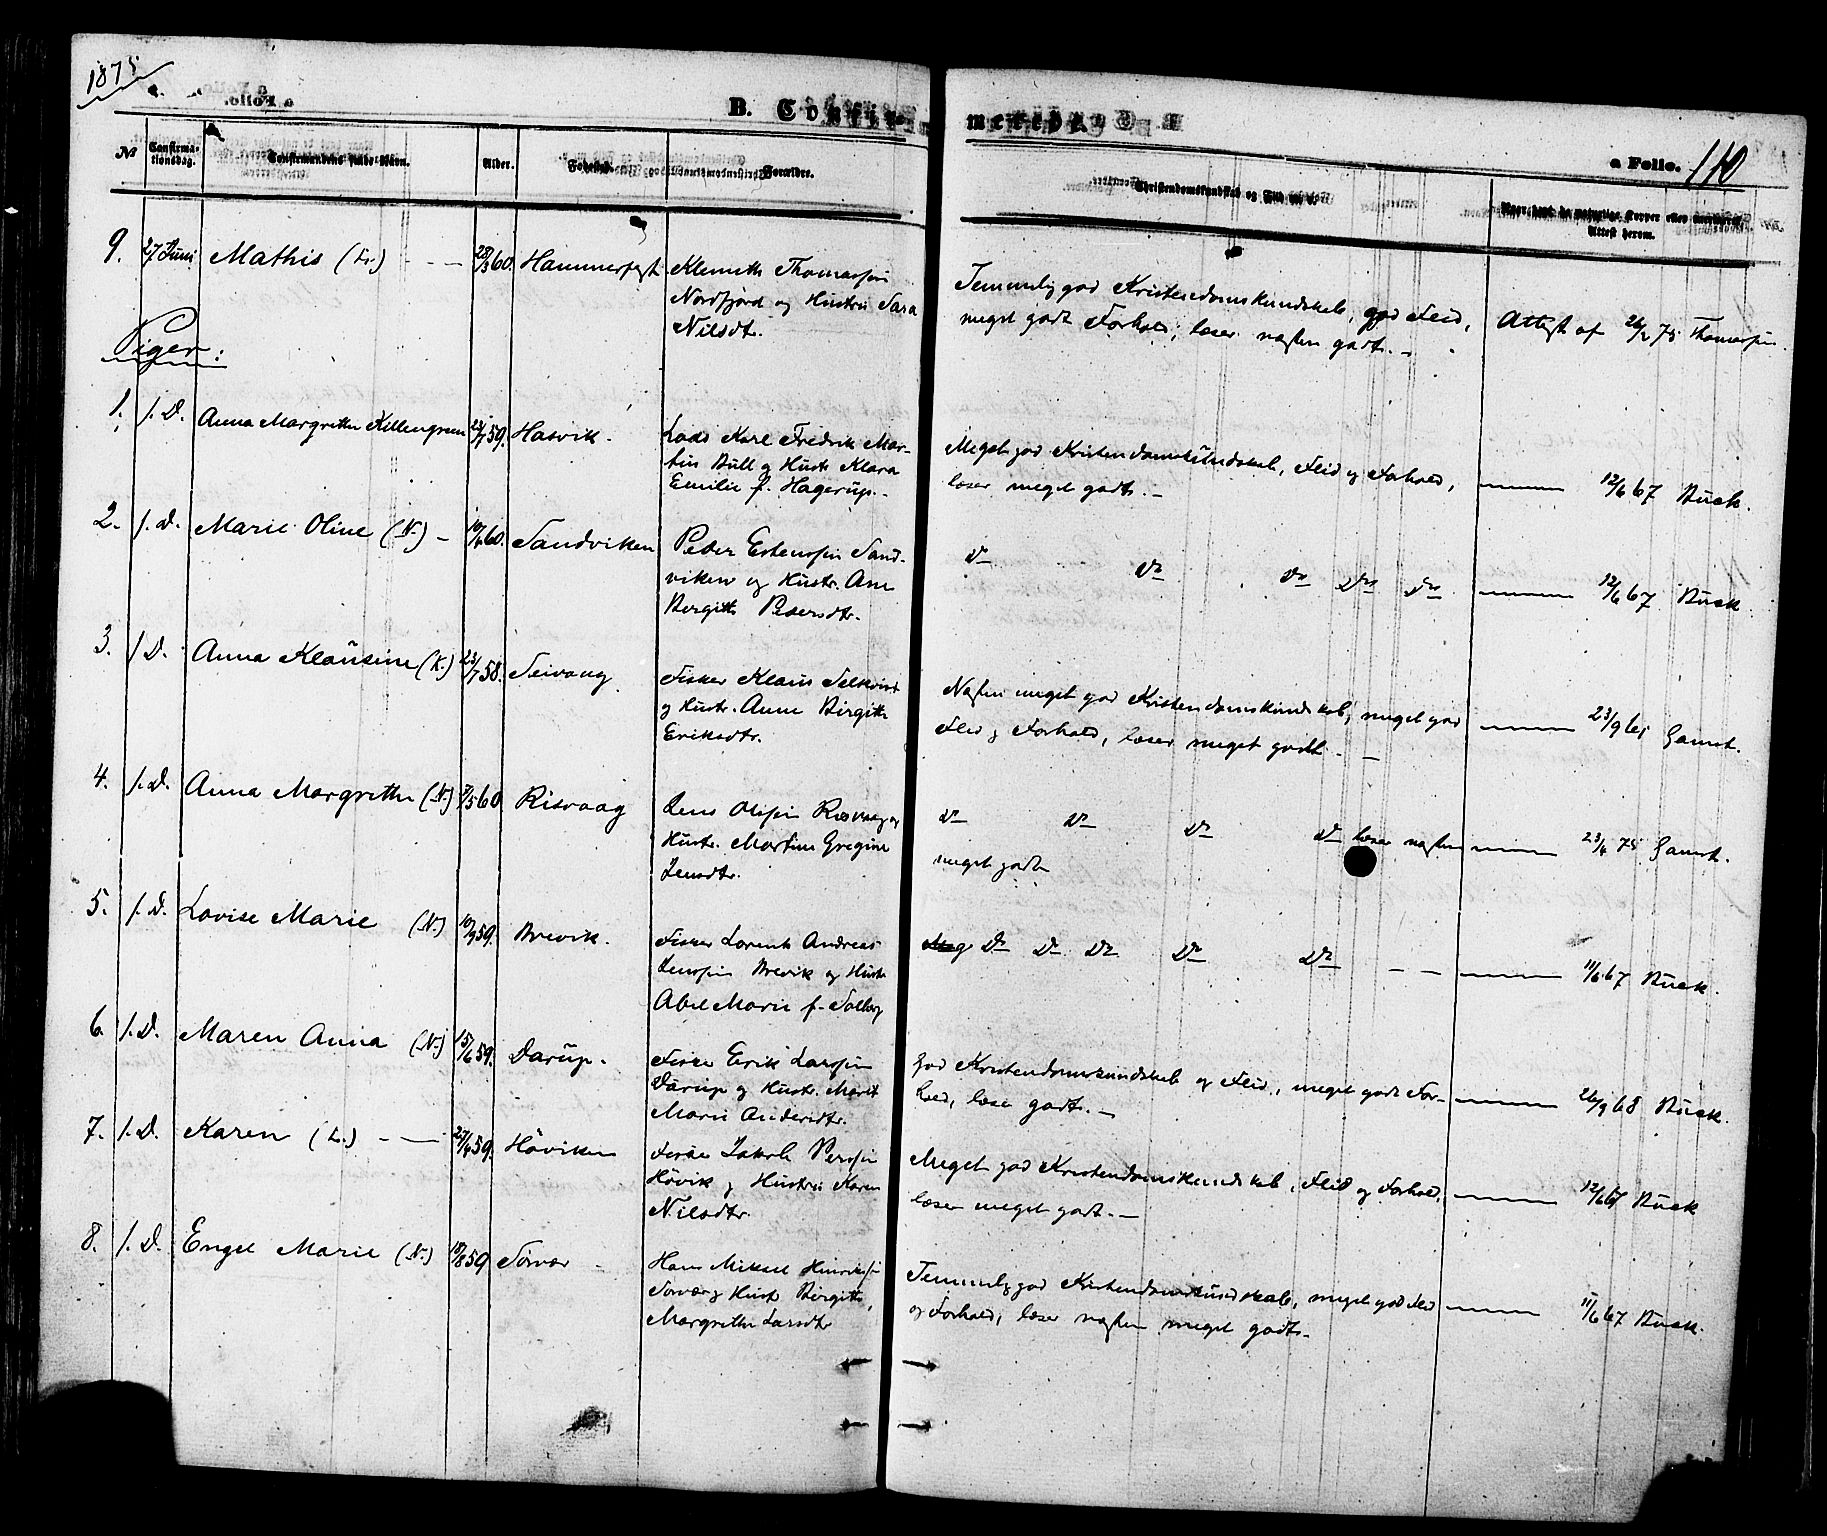 1875
B. Confirmerede. a Folio. 110
No Confirmationsdag. Confirmandens fulde Navn. Alder. Fødested. Forældre. Christendomskundskab og
Attest herom.
9. 27 Juni Mathis (L.) - - - 28/3 60. Hammerfest Klemeth Thomassen
Nordfjord og Hustru Sara
Nilsdtr.
Temmelig god Kristendomskundskab, god Flid,
meget godt Forhold, læser næsten godt. -
Attest af 26/2 75 Thomassen.
Piger:
1. s. D. Anna Margrethe Killengreen 59. Hasvik. Karl Fredrik Mar-
tin Bull og Hustr Klara
Emilie f. Hagerup. -
Meget god Kristendomskundskab, Flid og Forhold,
læser meget godt. -
12/6 67 Buck.
2. s. D. Marie Oline (N.) - 60. Sandviken Peder Estensen Sand-
viken og Hustr. Ane
Bergithe Pedersdtr.
Do Do Do Do Do 12/6 67 Buck
3. s. D. Anna Klausine (K.) 23/7 58. Seivaag Fisker Klaus
og Hustr. Anne Birgithe
Eriksdtr.
Næsten meget god Kristendomskundskab, meget god
Flid og Forhold, læser meget godt. -
Gamst.
4. s. D. Anna Margrethe (N.) 60 Risvaag Jens Olsen Risvaag og
Hustr. Martine Gregine
Jensdtr.
Do Do Do Do læser næsten
meget godt
75 Gamst.
5. s. D. Lovise Marie (N.) 10/9 59. Brevik. Fisker Lorents Andreas
Jensen Brevik og Hustr
Abel Marie f. Solberg
Do Do Do Do Do - - 11/6 67 Buck.
6. s. D. Maren Anna (N.) 15/6 59. Darup. Fisker Erik Larssen
Darup og Hustr. Marit
Marie Andersdtr.
God Kristendomskundskab og Flid, meget godt For-
hold, læser godt. -
26/9 68 Buck.
7. s. D. Karen (L.) - - 59. Høviken Fisker Jakob Perssen
Høvik og Hustru Karen
Nilsdtr.
Meget god Kristendomskundskab, Flid og Forhold,
læser meget godt. -
12/6 67 Buck
8. s. D. Engel Marie (N.) 18/8 59 Sørvær - Hans Mikael Hinriksen
Sørvær og Hustr Bergitte
Margrethe Larsdtr
Temmelig god Kristendomskundskab, meget god Flid
og Forhold, læser næsten meget godt. -
11/6 67 Buck.